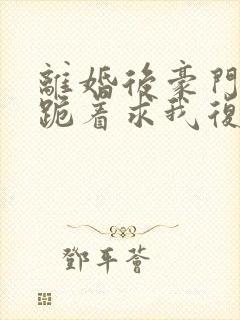 離婚後豪門
跪着求我復
鄧平薈